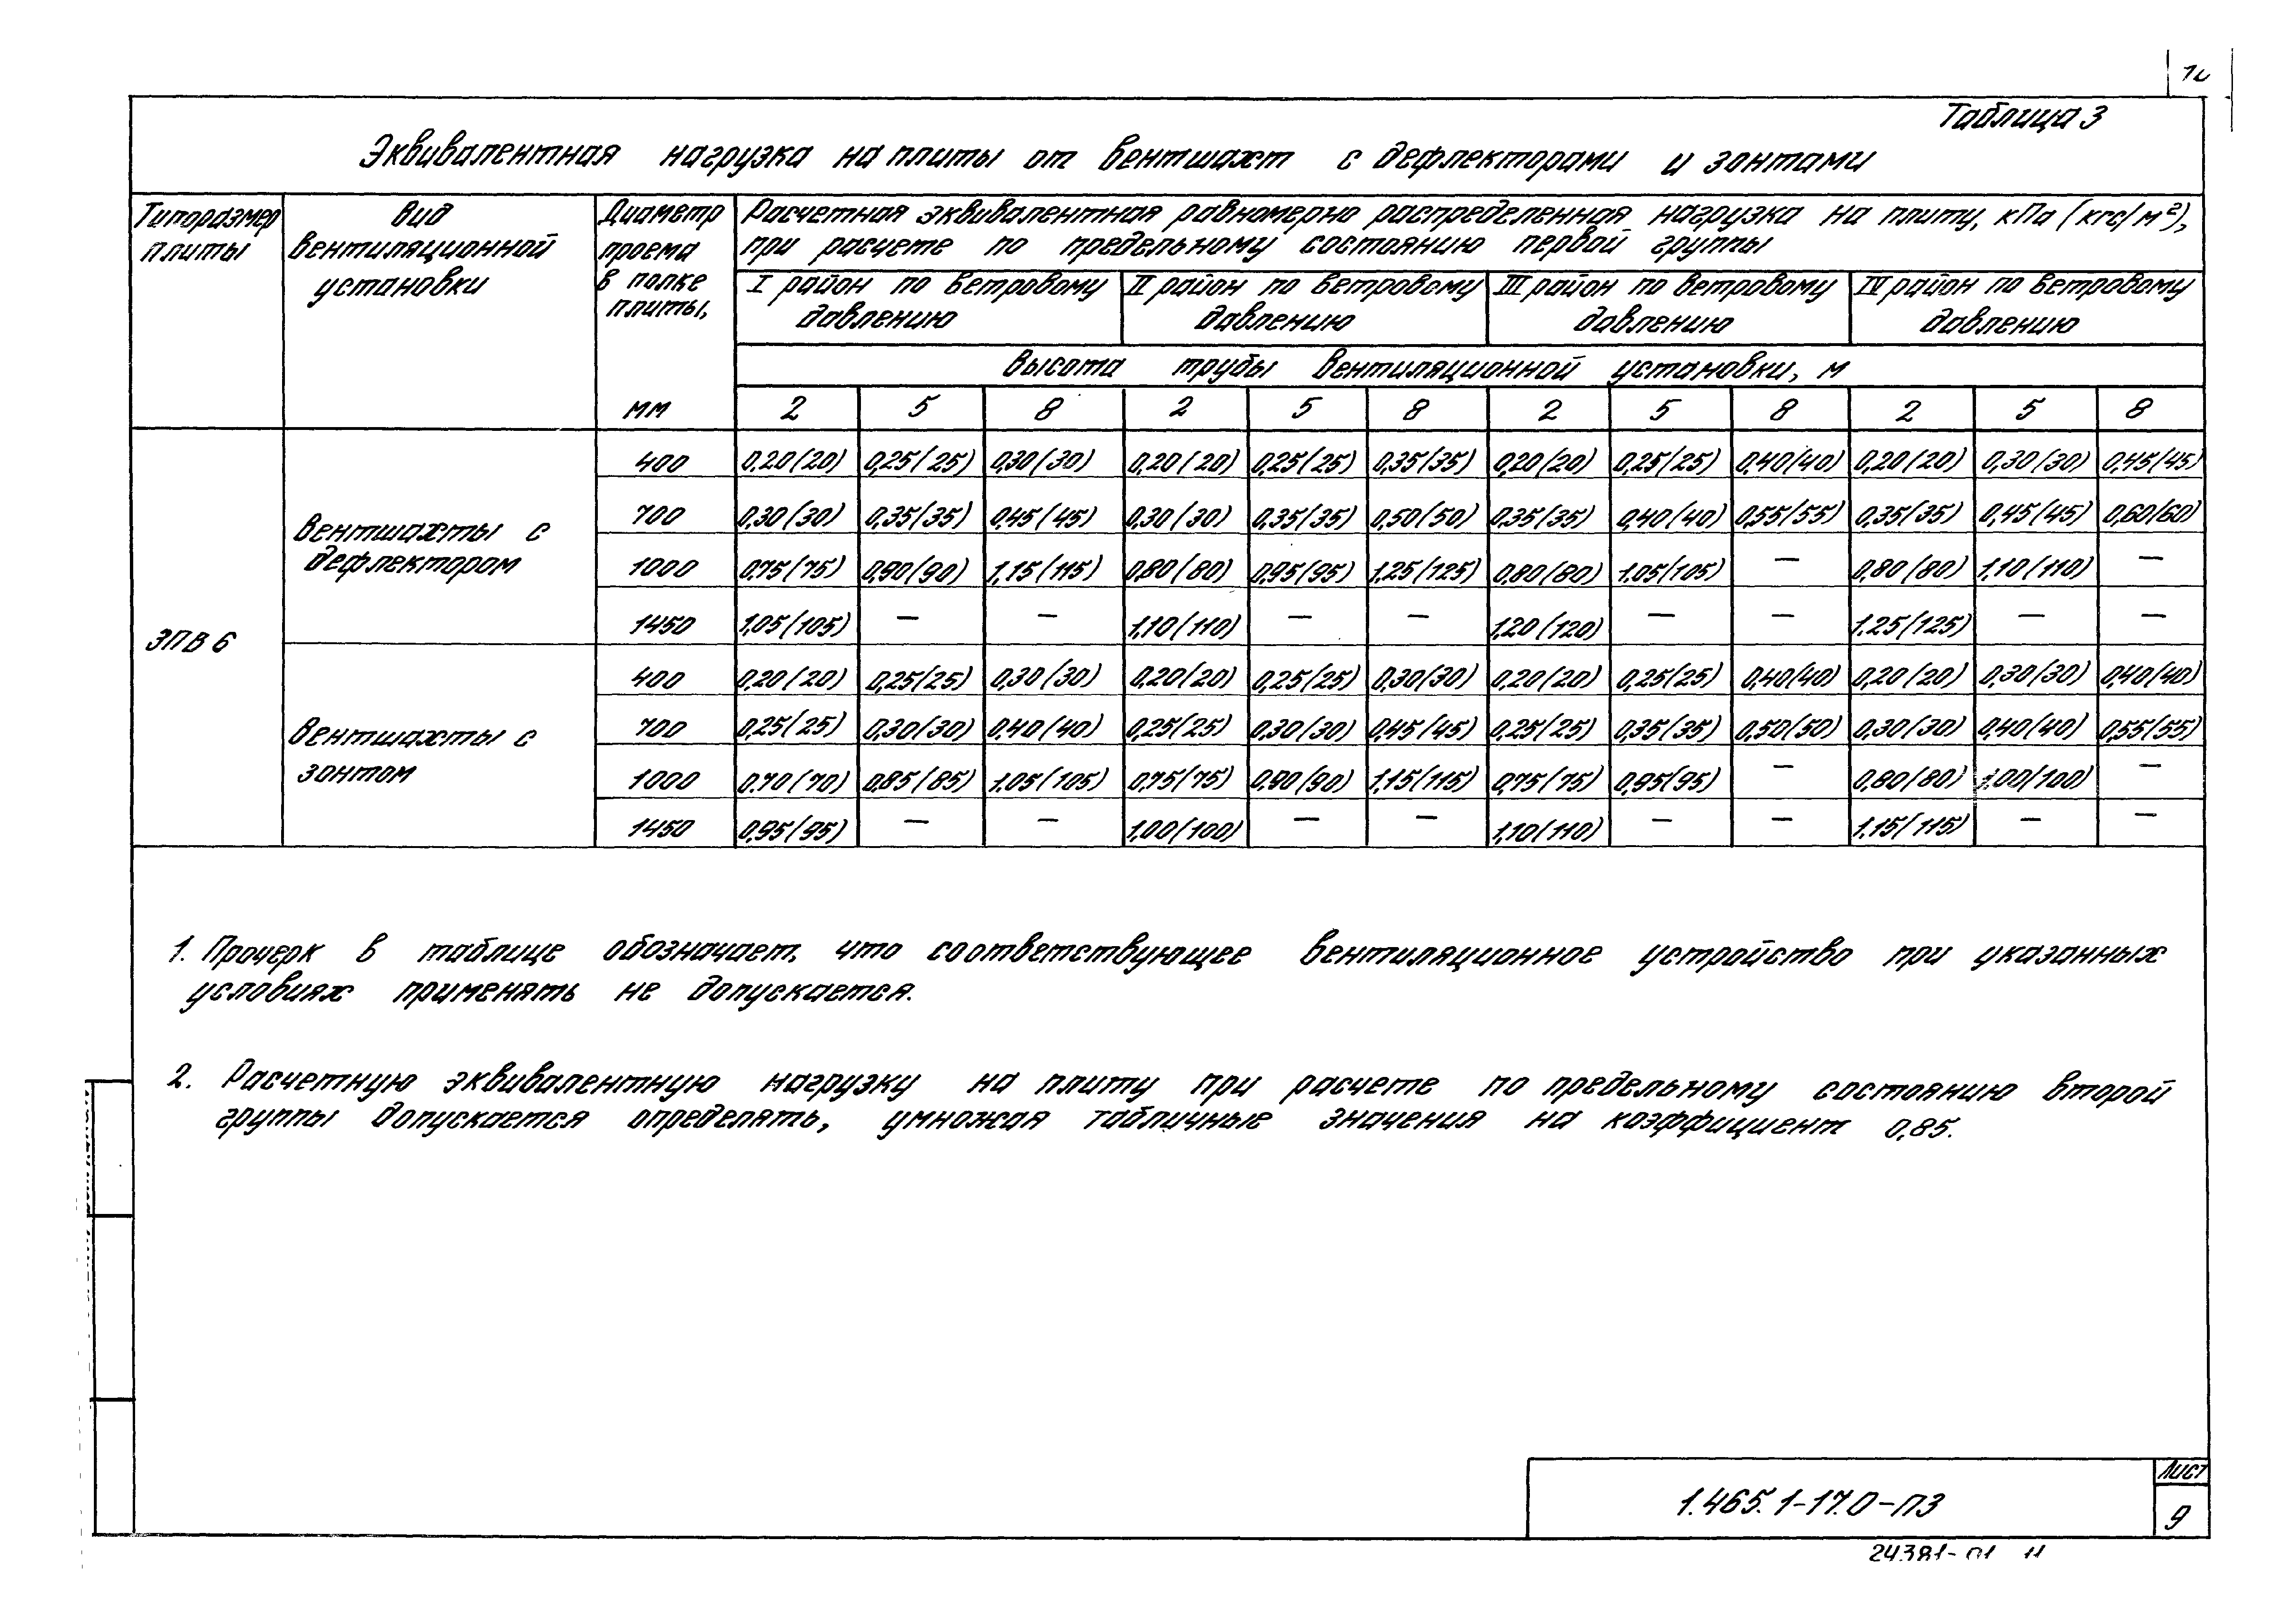 Таблица 3
Эквивалентная нагрузка на плиты от вентшахт с дефлекторами и зонтами
Типоразмер плиты
Вид вентиляционной установки
Диаметр проема в полке плиты, мм
Расчетная эквивалентная равномерно распределенная нагрузка на плиту, кПа (кгс/м²),
при расчете по предельному состоянию первой группы
I район по ветровому давлению
II район по ветровому давлению
III район по ветровому давлению
IV район по ветровому давлению
Высота трубы вентиляционной установки, м
2 5 8 2 5 8 2 5 8 2 5 8
ЭПВ 6
Вентшахты с дефлектором
400 0,20(20) 0,25(25) 0,30(30) 0,20(20) 0,25(25) 0,35(35) 0,20(20) 0,25(25) 0,40(40) 0,20(20) 0,30(30) 0,45(45)
700 0,30(30) 0,35(35) 0,45(45) 0,30(30) 0,35(35) 0,50(50) 0,35(35) 0,40(40) 0,55(55) 0,35(35) 0,45(45) 0,60(60)
1000 0,75(75) 0,90(90) 1,15(115) 0,80(80) 0,95(95) 1,25(125) 0,80(80) 1,05(105) — 0,80(80) 1,10(110) —
1450 1,05(105) — — 1,10(110) — — 1,20(120) — — 1,25(125) — —
Вентшахты с зонтом
400 0,20(20) 0,25(25) 0,30(30) 0,20(20) 0,25(25) 0,30(30) 0,20(20) 0,25(25) 0,40(40) 0,20(20) 0,30(30) 0,40(40)
700 0,25(25) 0,30(30) 0,40(40) 0,25(25) 0,30(30) 0,45(45) 0,25(25) 0,35(35) 0,50(50) 0,30(30) 0,40(40) 0,55(55)
1000 0,70(70) 0,85(85) 1,05(105) 0,75(75) 0,90(90) 1,15(115) 0,75(75) 0,95(95) — 0,80(80) 1,00(100) —
1450 0,95(95) — — 1,00(100) — — 1,10(110) — — 1,15(115) — —
1. Прочерк в таблице обозначает, что соответствующее вентиляционное устройство при указанных
условиях применять не допускается.
2. Расчетную эквивалентную нагрузку на плиту при расчете по предельному состоянию второй
группы допускается определять, умножая табличные значения на коэффициент 0,85.
1.465.1-17.0-ПЗ
Лист
9
24381-01 11